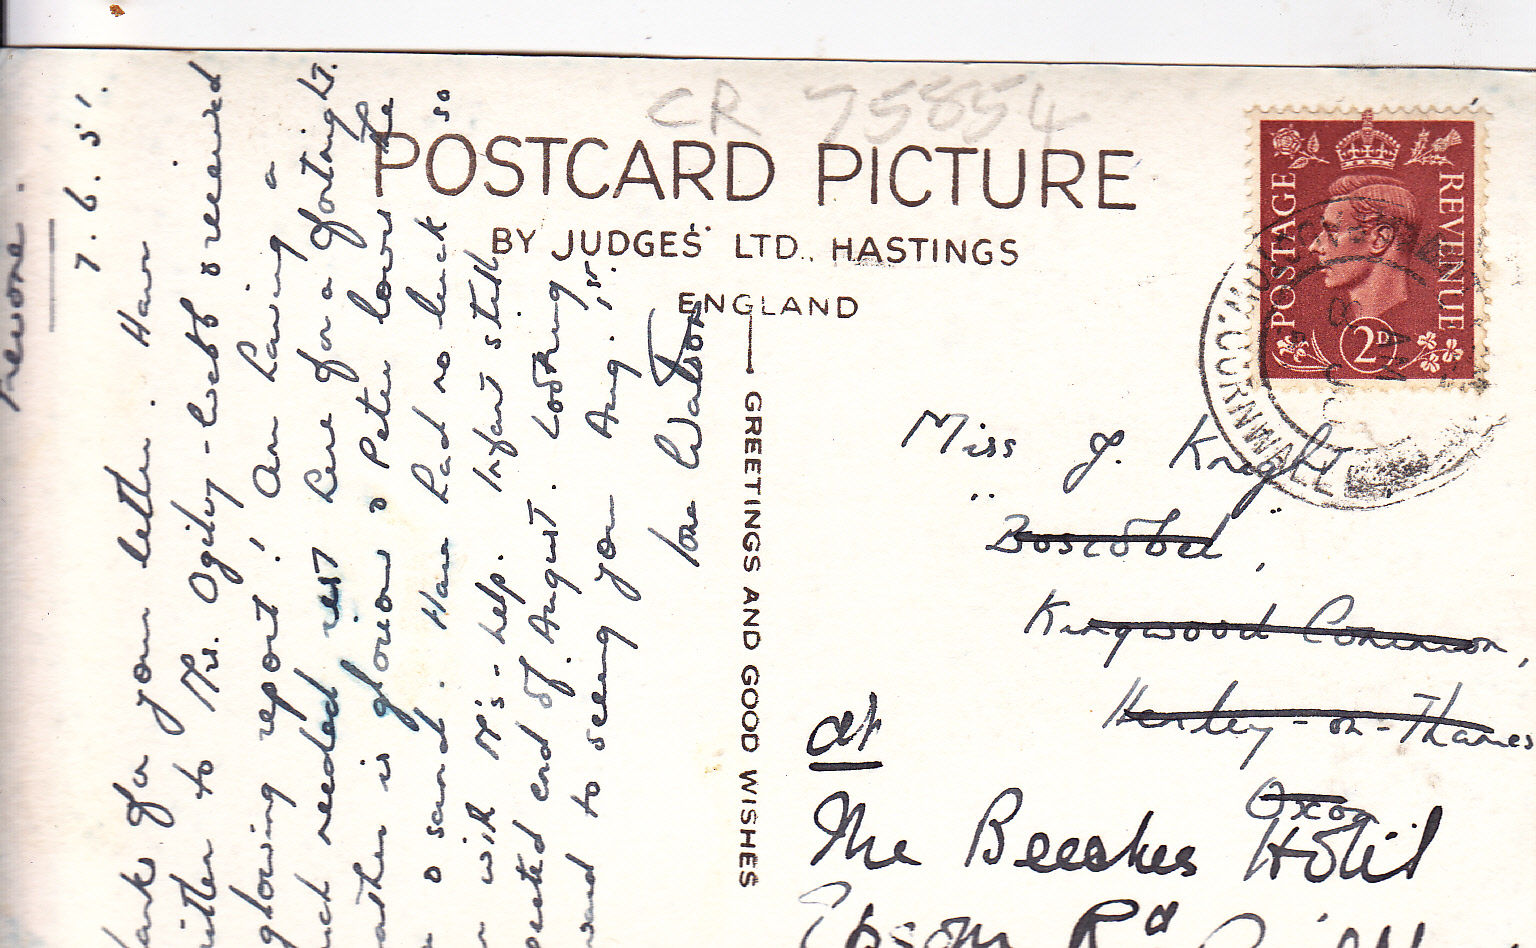 CR 75854
POSTCARD PICTURE
BY JUDGES' LTD., HASTINGS
ENGLAND
GREETINGS AND GOOD WISHES
POSTAGE
REVENUE
2D
CORNWALL
7.6.51.
for your letter. Have
to Mrs. Ogilvy-Webb & received
glowing report! Am having a
needed rest here for a fortnight.
is glorious & Peter loves the
& sand. Have had no luck so
with M's-help. Infant still
end of August. Looking
to seeing you Aug. 1st.
Watson
Miss J. Knight
Boscobel,
Kingwood Common,
Henley-on-Thames
Oxon
at
The Beeches Hotel
Epsom Rd